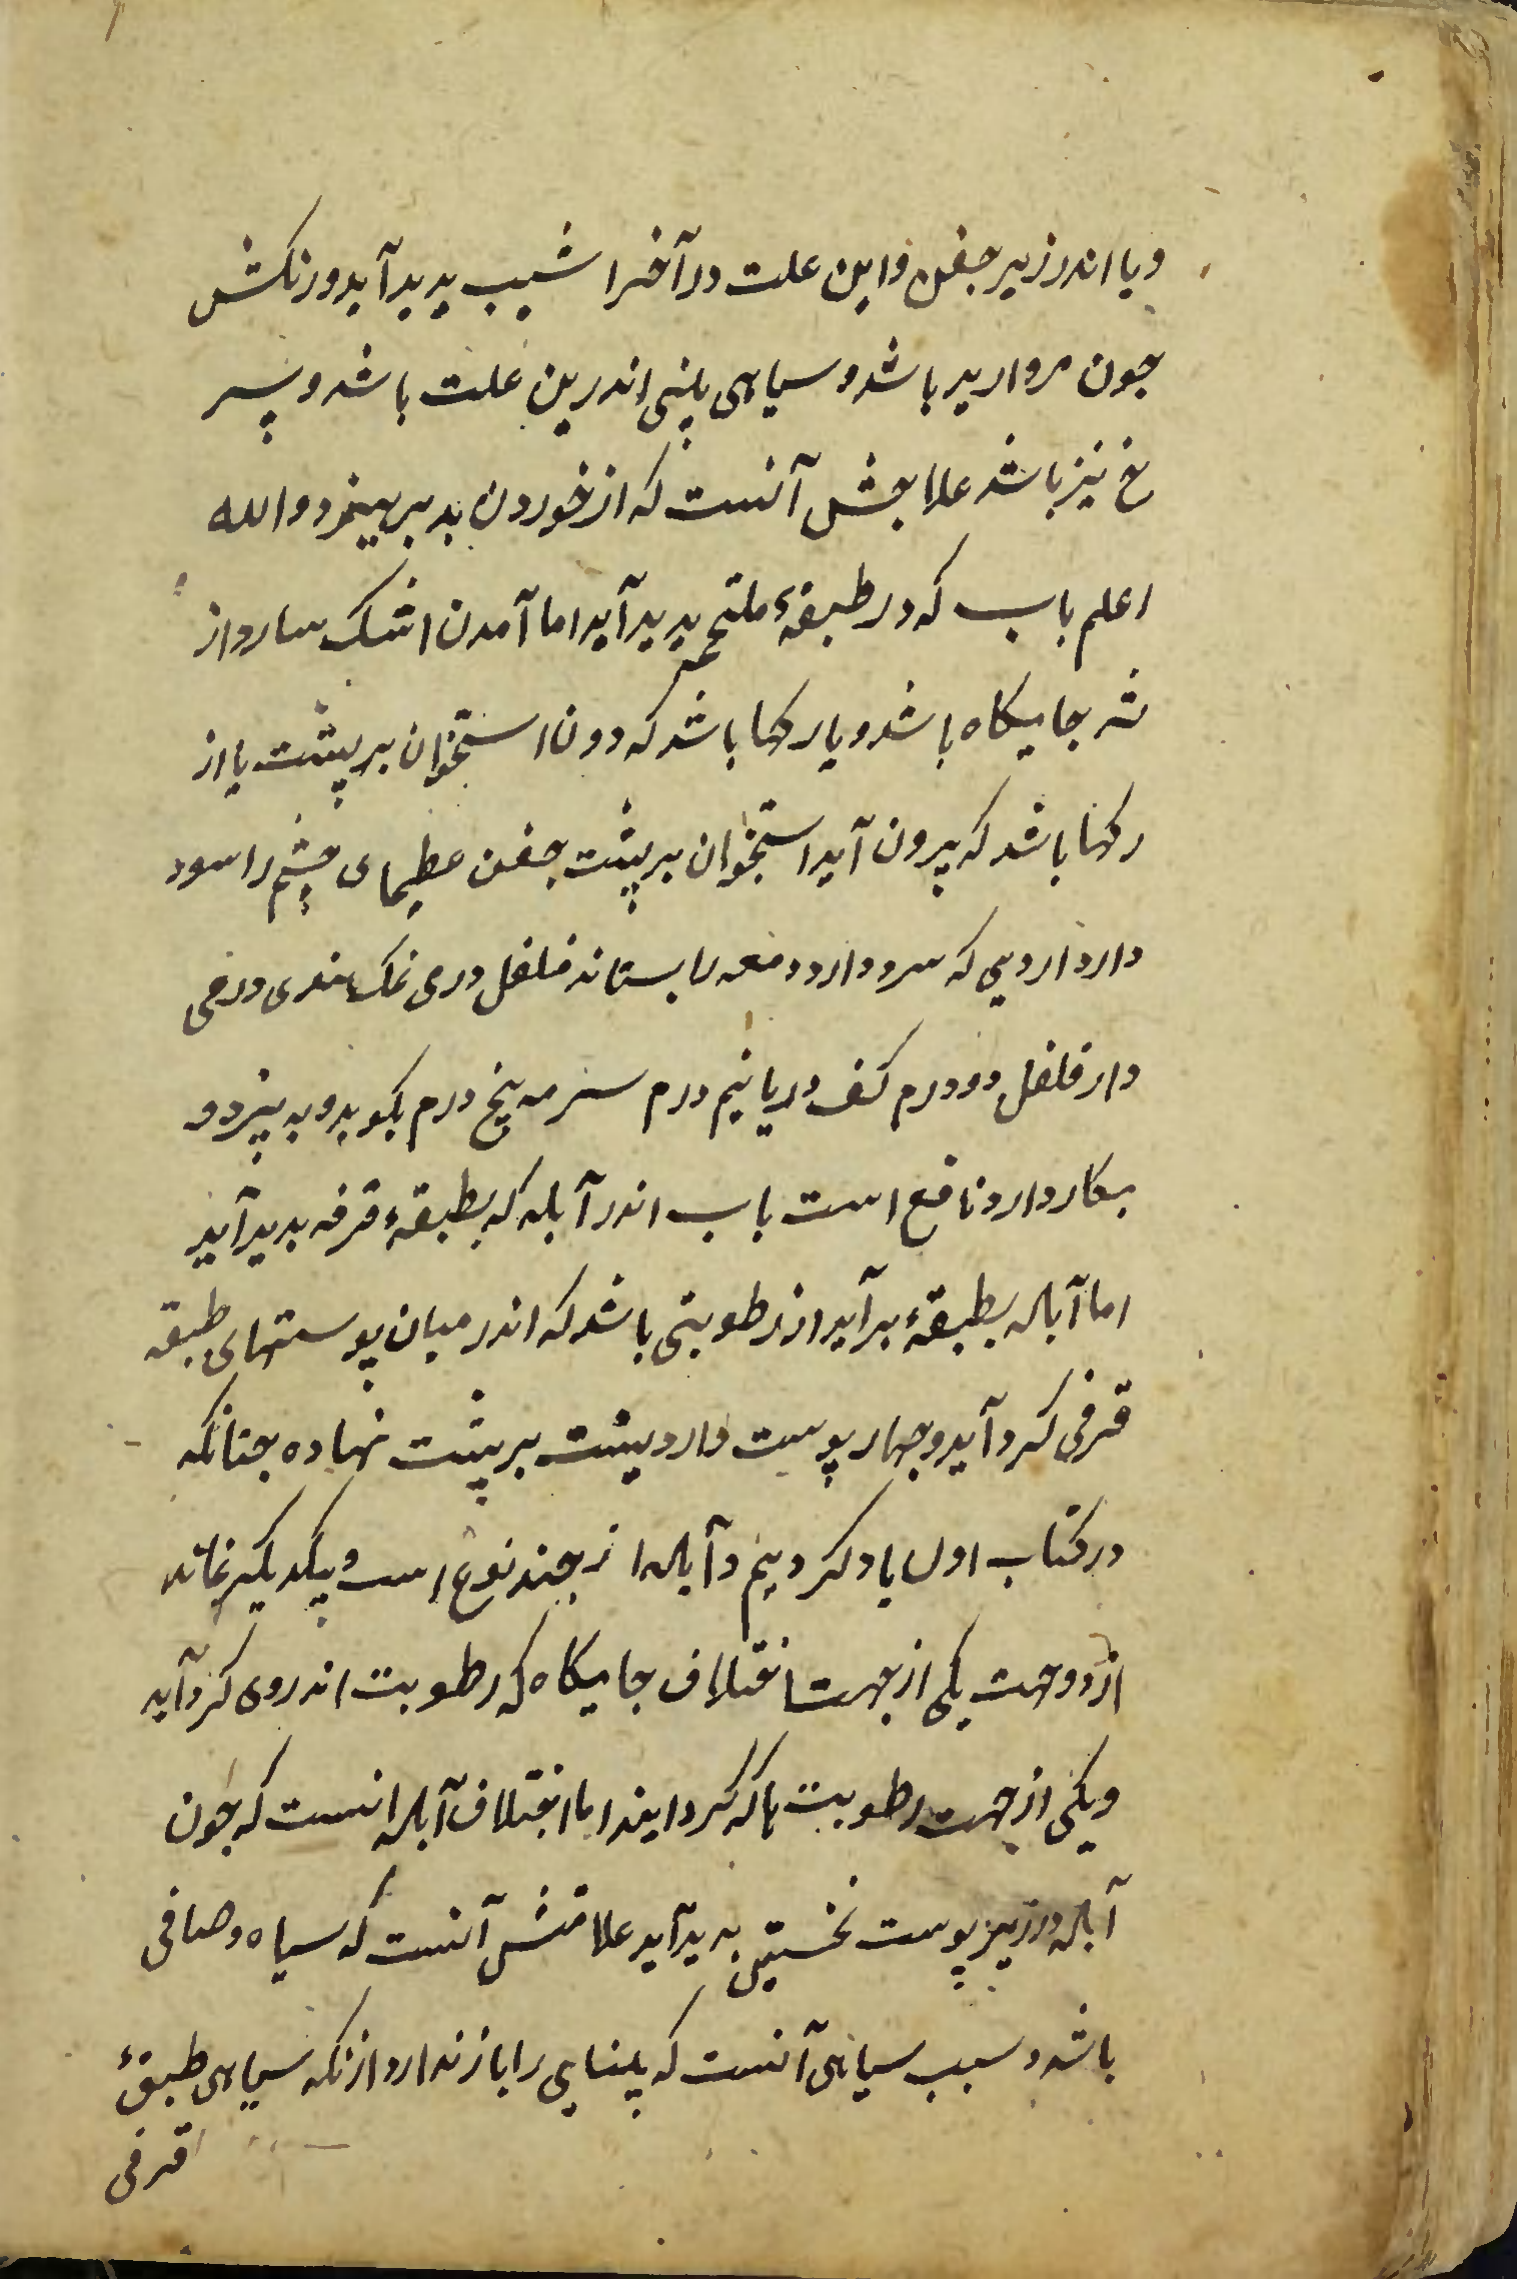 و یا اندر زیر جفن و این علت در آخر ا شیب پدید آید و رنکش
جون مروارید باشد و سیاهی بینی اندرین علت باشد و پسر
خ نیز باشد علاجش آنست که از خوردن بد بپرهیزد و الله
اعلم باب که در طبقهٔ ملتحمه پدید آید اما آمدن اشک سارواز
شه جایکاه باشد و یا رکها باشد که دون استخوان بر پشت یا از
رکها باشد که بیرون آید استخوان بر پشت جفن عطیمای چشم را سود
دارد داروی که سود دارد دمعه را بستاند فلفل درمی نمک هندی درمی
دار فلفل دو درم کف دریا نیم درم سرمه پنج درم بکوبد و به پیزد و
بکار دارد نافع است باب اندر آبله که بطبقهٔ قرفه پدید آید
اما آبله بطبقهٔ بر آید از رطوبتی باشد که اندر میان پوستهای طبقه
قرفی کرد آید و جهار پوست دارد پشت بر پشت نهاده جنانکه
در کتاب اول یاد کردیم و آبله از جند نوع است و بیکدیکر نماند
از دو جهت یکی از جهت اختلاف جایکاه که رطوبت اندر وی کرد آید
و یکی از جهت رطوبت ها که کرد ایند اما اختلاف آبله انست که جون
آبله در زیر پوست نخستین پدید آید علامتش آنست که سیاه و صافی
باشد و سبب سیاهی آنست که بینایی را باز ندارد از نکه سیاهی طبقهٔ
قرفی